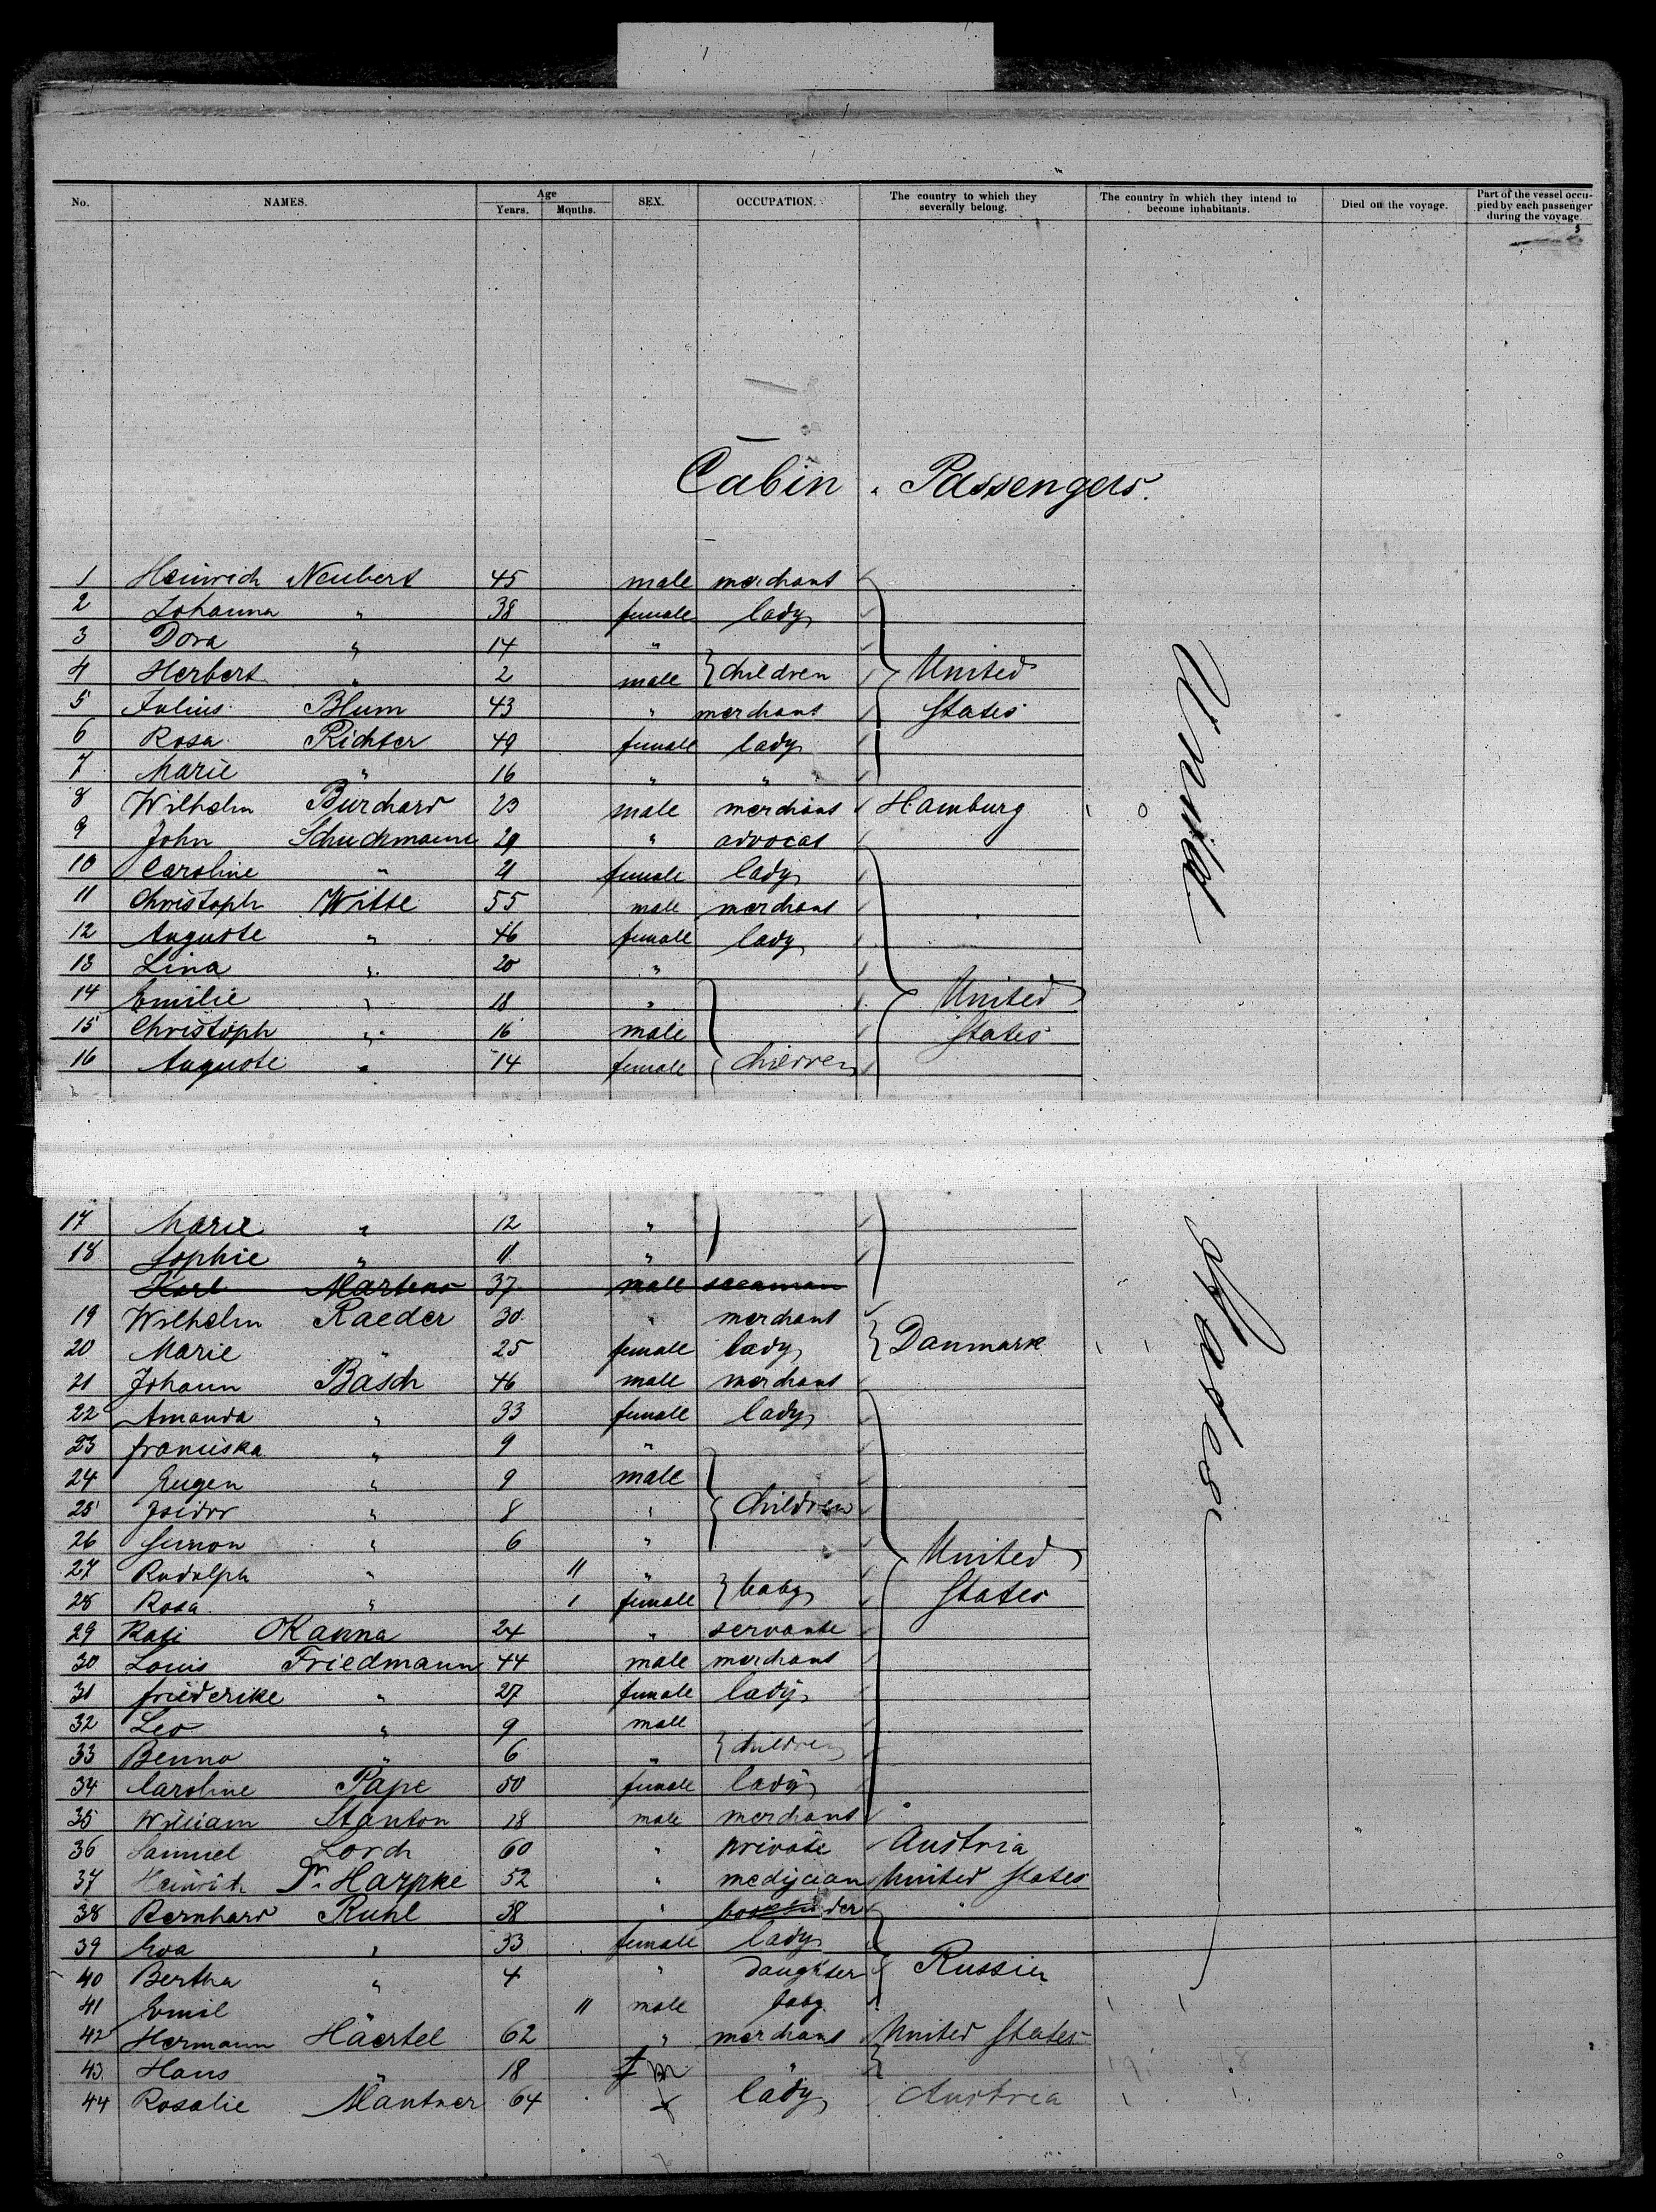 No. NAMES. Age Years. Months. SEX. OCCUPATION. The country to which they severally belong. The country in which they intend to become inhabitants. Died on the voyage. Part of the vessel occupied by each passenger during the voyage.
Cabin. Passengers.
1 Heinrich Neubert 45 male merchant
2 Johanna " 38 female lady
3 Dora " 14 "
4 Herbert " 2 male children United
5 Julius Blum 43 " merchant States
6 Rosa Richter 49 female lady
7 Marie " 16 " "
8 Wilhelm Burchard 23 male merchant Hamburg
9 John Schuchmann 29 " advocat
10 Caroline " 21 female lady
11 Christoph Witte 55 male merchant
12 Auguste " 46 female lady
13 Lina " 20 "
14 Emilie " 18 " United
15 Christoph " 16 male States
16 Auguste " 14 female children
United
17 Marie " 12 "
18 Sophie " 11 "
Karl Martens 37 male seaman
19 Wilhelm Raeder 30 " merchant
20 Marie " 25 female lady Danmark
21 Johann Basch 46 male merchant
22 Amanda " 33 female lady
23 Franciska " 9 "
24 Eugen " 9 male
25 Isidor " 8 " Children
26 Simon " 6 "
27 Rudolph " 11 " United
28 Rosa " 1 female baby States
29 OKanna 24 " servante
30 Louis Friedmann 44 male merchant
31 Friederike " 27 female lady
32 Leo " 9 male
33 Benno " 6 " children
34 Caroline Pape 50 female lady
35 William Stanton 28 male merchant
36 Samuel Lorch 60 " private Austria
37 Heinrich Dr. Harpke 52 " medizian United States
38 Bernhard Ruhl 38 "
39 Eva " 33 female lady
40 Bertha " 4 " daughter Russia
41 Emil 11 male baby
42 Hermann Häertel 62 " merchant United States
43 Hans " 18 m "
44 Rosalie Mantner 64 f lady Austria
States